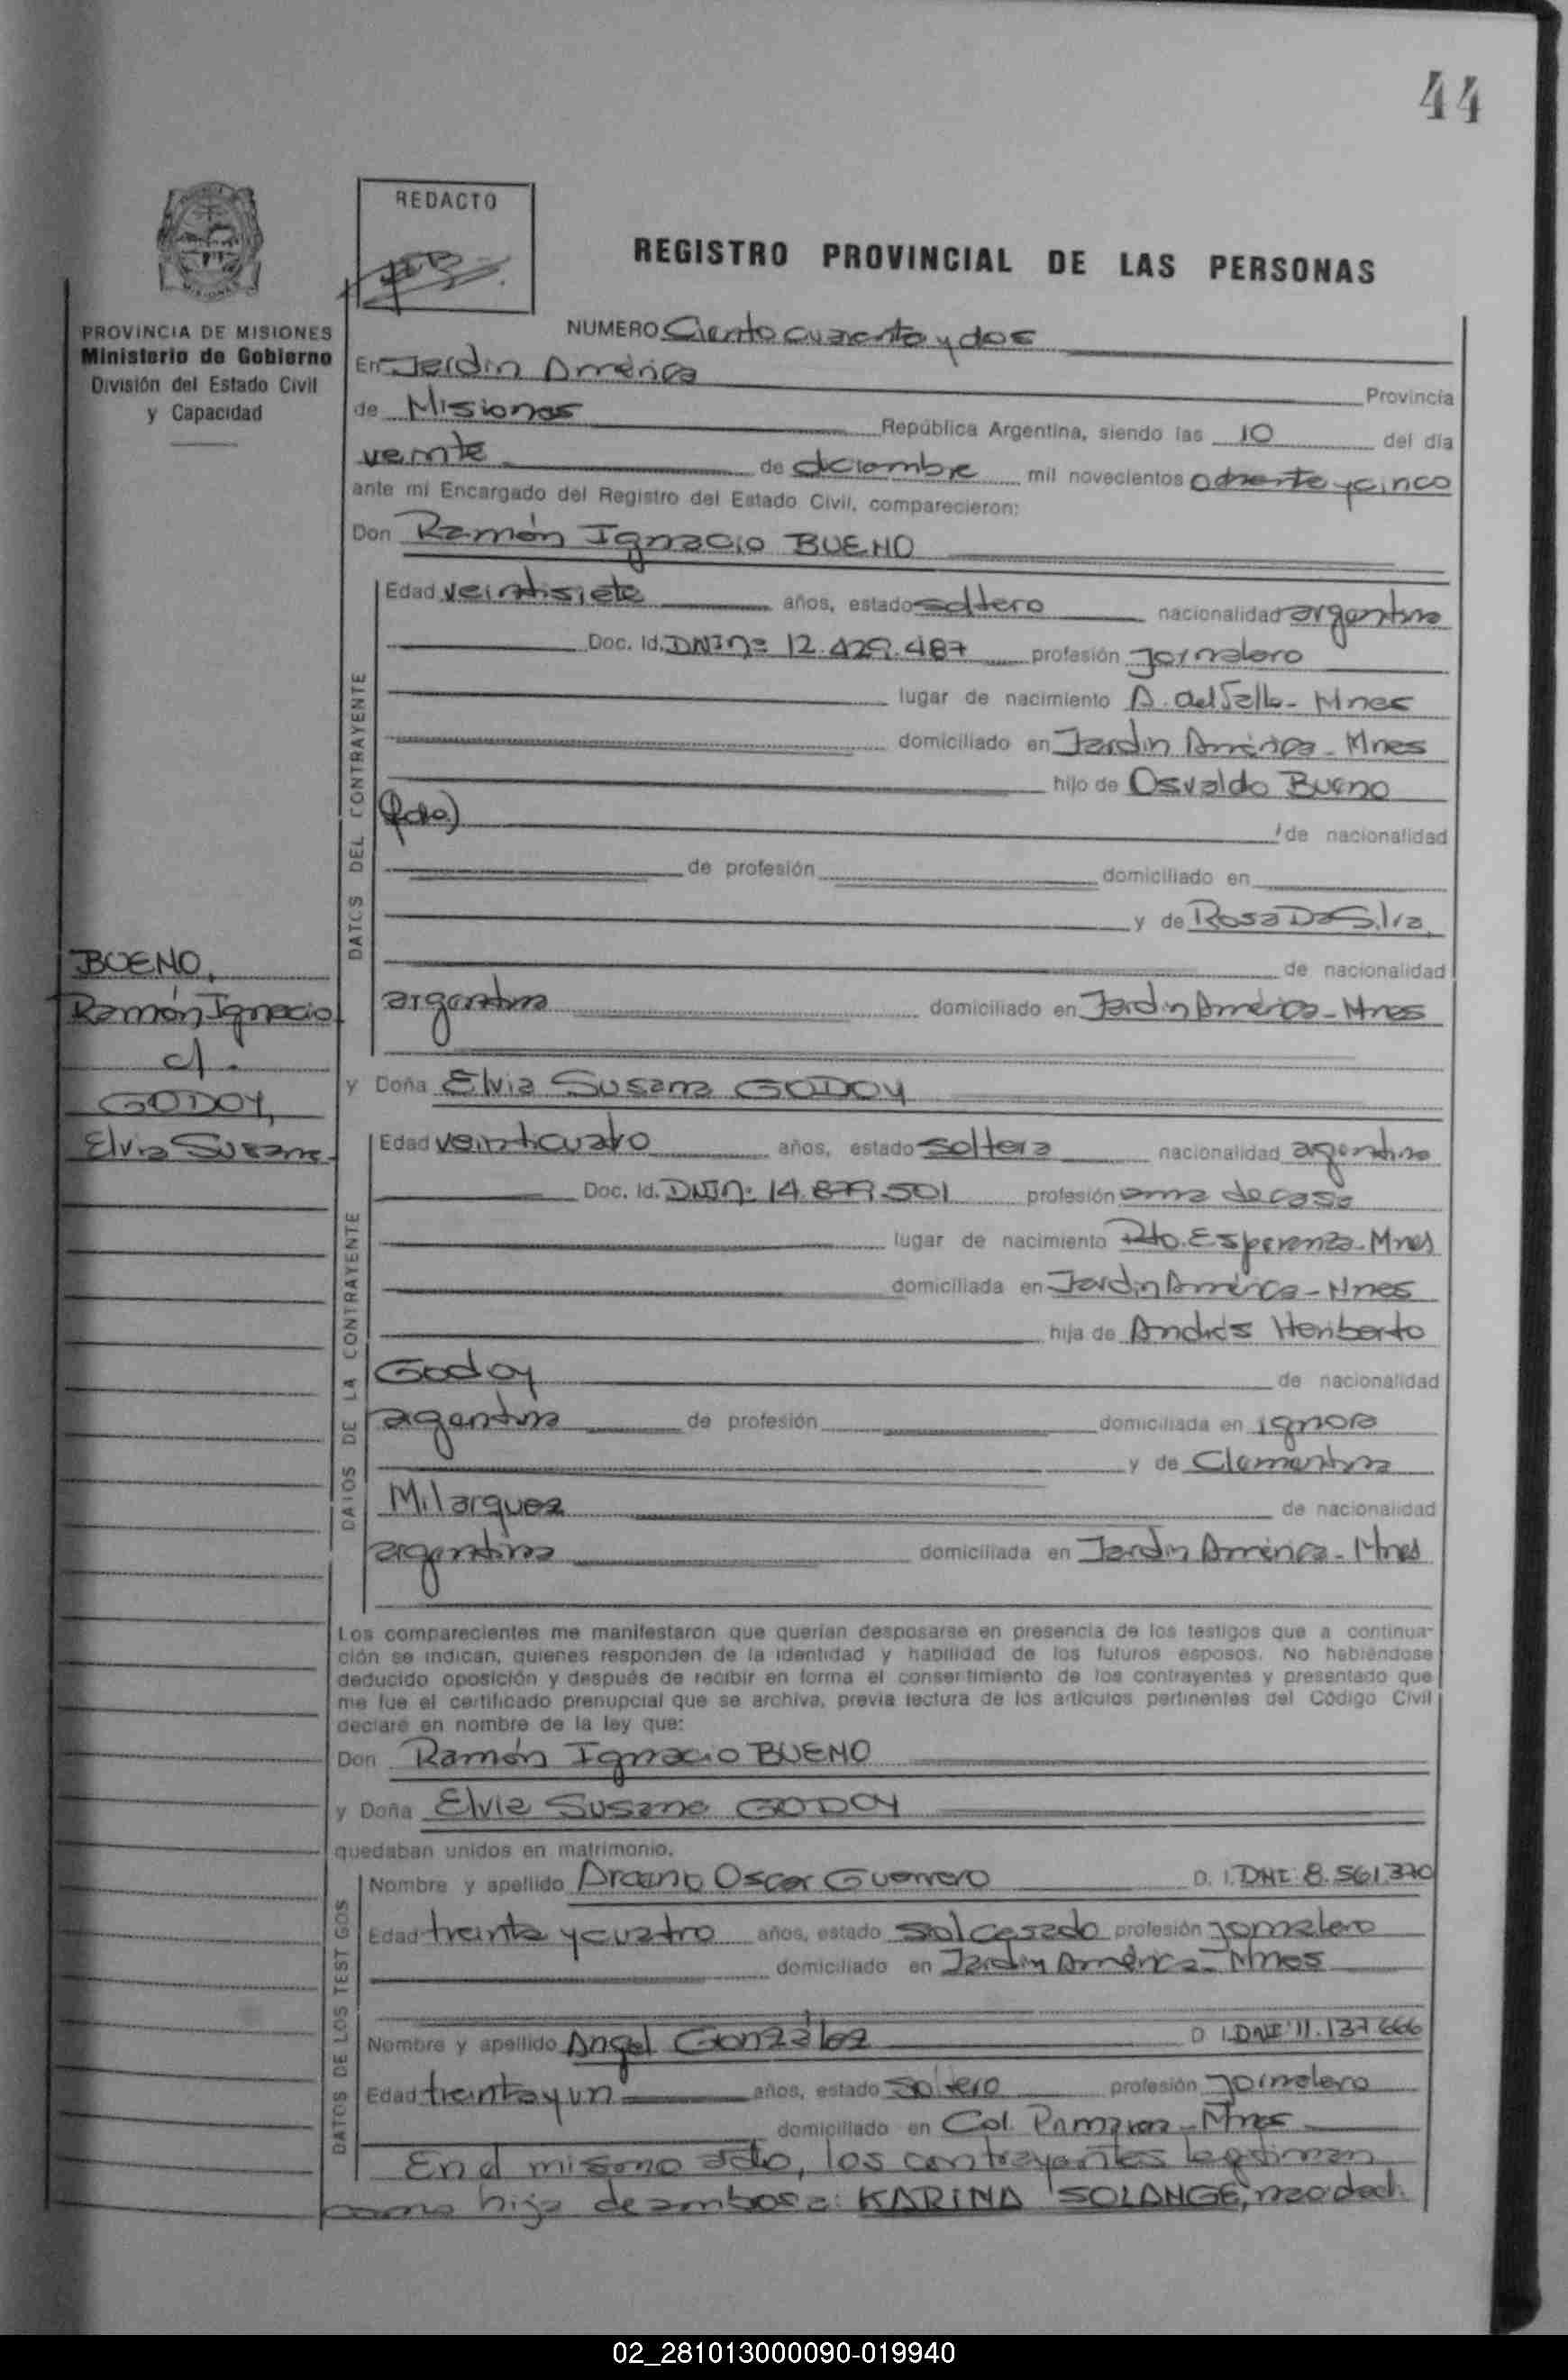 44
REDACTO
REGISTRO PROVINCIAL DE LAS PERSONAS
PROVINCIA DE MISIONES
Ministerio de Gobierno
División del Estado Civil
y Capacidad
NUMERO Ciento cuarenta y dos
En Jardín América
Provincia
de Misiones República Argentina, siendo las 10 del día
veinte de diciembre mil novecientos ochenta y cinco
ante mí Encargado del Registro del Estado Civil, comparecieron:
Don Ramón Ignacio BUENO
DATOS DEL CONTRAYENTE
Edad veintisiete años, estado soltero nacionalidad argentina
Doc. Id. DNI nº 12.429.487 profesión jornalero
lugar de nacimiento A. del Valle - Mnes
domiciliado en Jardín América - Mnes
hijo de Osvaldo Bueno
(fdo) de nacionalidad
de profesión domiciliado en
y de Rosa Da Silva,
de nacionalidad
argentina domiciliado en Jardín América - Mnes
BUENO,
Ramón Ignacio
c/.
GODOY,
Elvia Susana.
y Doña Elvia Susana GODOY
DATOS DE LA CONTRAYENTE
Edad veinticuatro años, estado soltera nacionalidad argentina
Doc. Id. DNI nº 14.879.501 profesión ama de casa
lugar de nacimiento Pto. Esperanza - Mnes
domiciliada en Jardín América - Mnes
hija de Andrés Heriberto
Godoy de nacionalidad
argentina de profesión domiciliada en ignora
y de Clementina
Milarquez de nacionalidad
argentina domiciliada en Jardín América - Mnes
Los comparecientes me manifestaron que querían desposarse en presencia de los testigos que a continua-
ción se indican, quienes responden de la identidad y habilidad de los futuros esposos. No habiéndose
deducido oposición y después de recibir en forma el consentimiento de los contrayentes y presentado que
me fue el certificado prenupcial que se archiva, previa lectura de los artículos pertinentes del Código Civil
declaré en nombre de la ley que:
Don Ramón Ignacio BUENO
y Doña Elvia Susana GODOY
quedaban unidos en matrimonio.
DATOS DE LOS TESTIGOS
Nombre y apellido Oscar Guerrero D. I. DNI 8.561.370
Edad treinta y cuatro años, estado profesión jornalero
domiciliado en Jardín América - Mnes
Nombre y apellido Angel González D. I. DNI 11.137.666
Edad treinta y un años, estado soltero profesión jornalero
domiciliado en Col. - Mnes
En el mismo acto, los contrayentes legitiman
como hija de ambos a: KARINA SOLANGE, nacida el
02_281013000090-019940